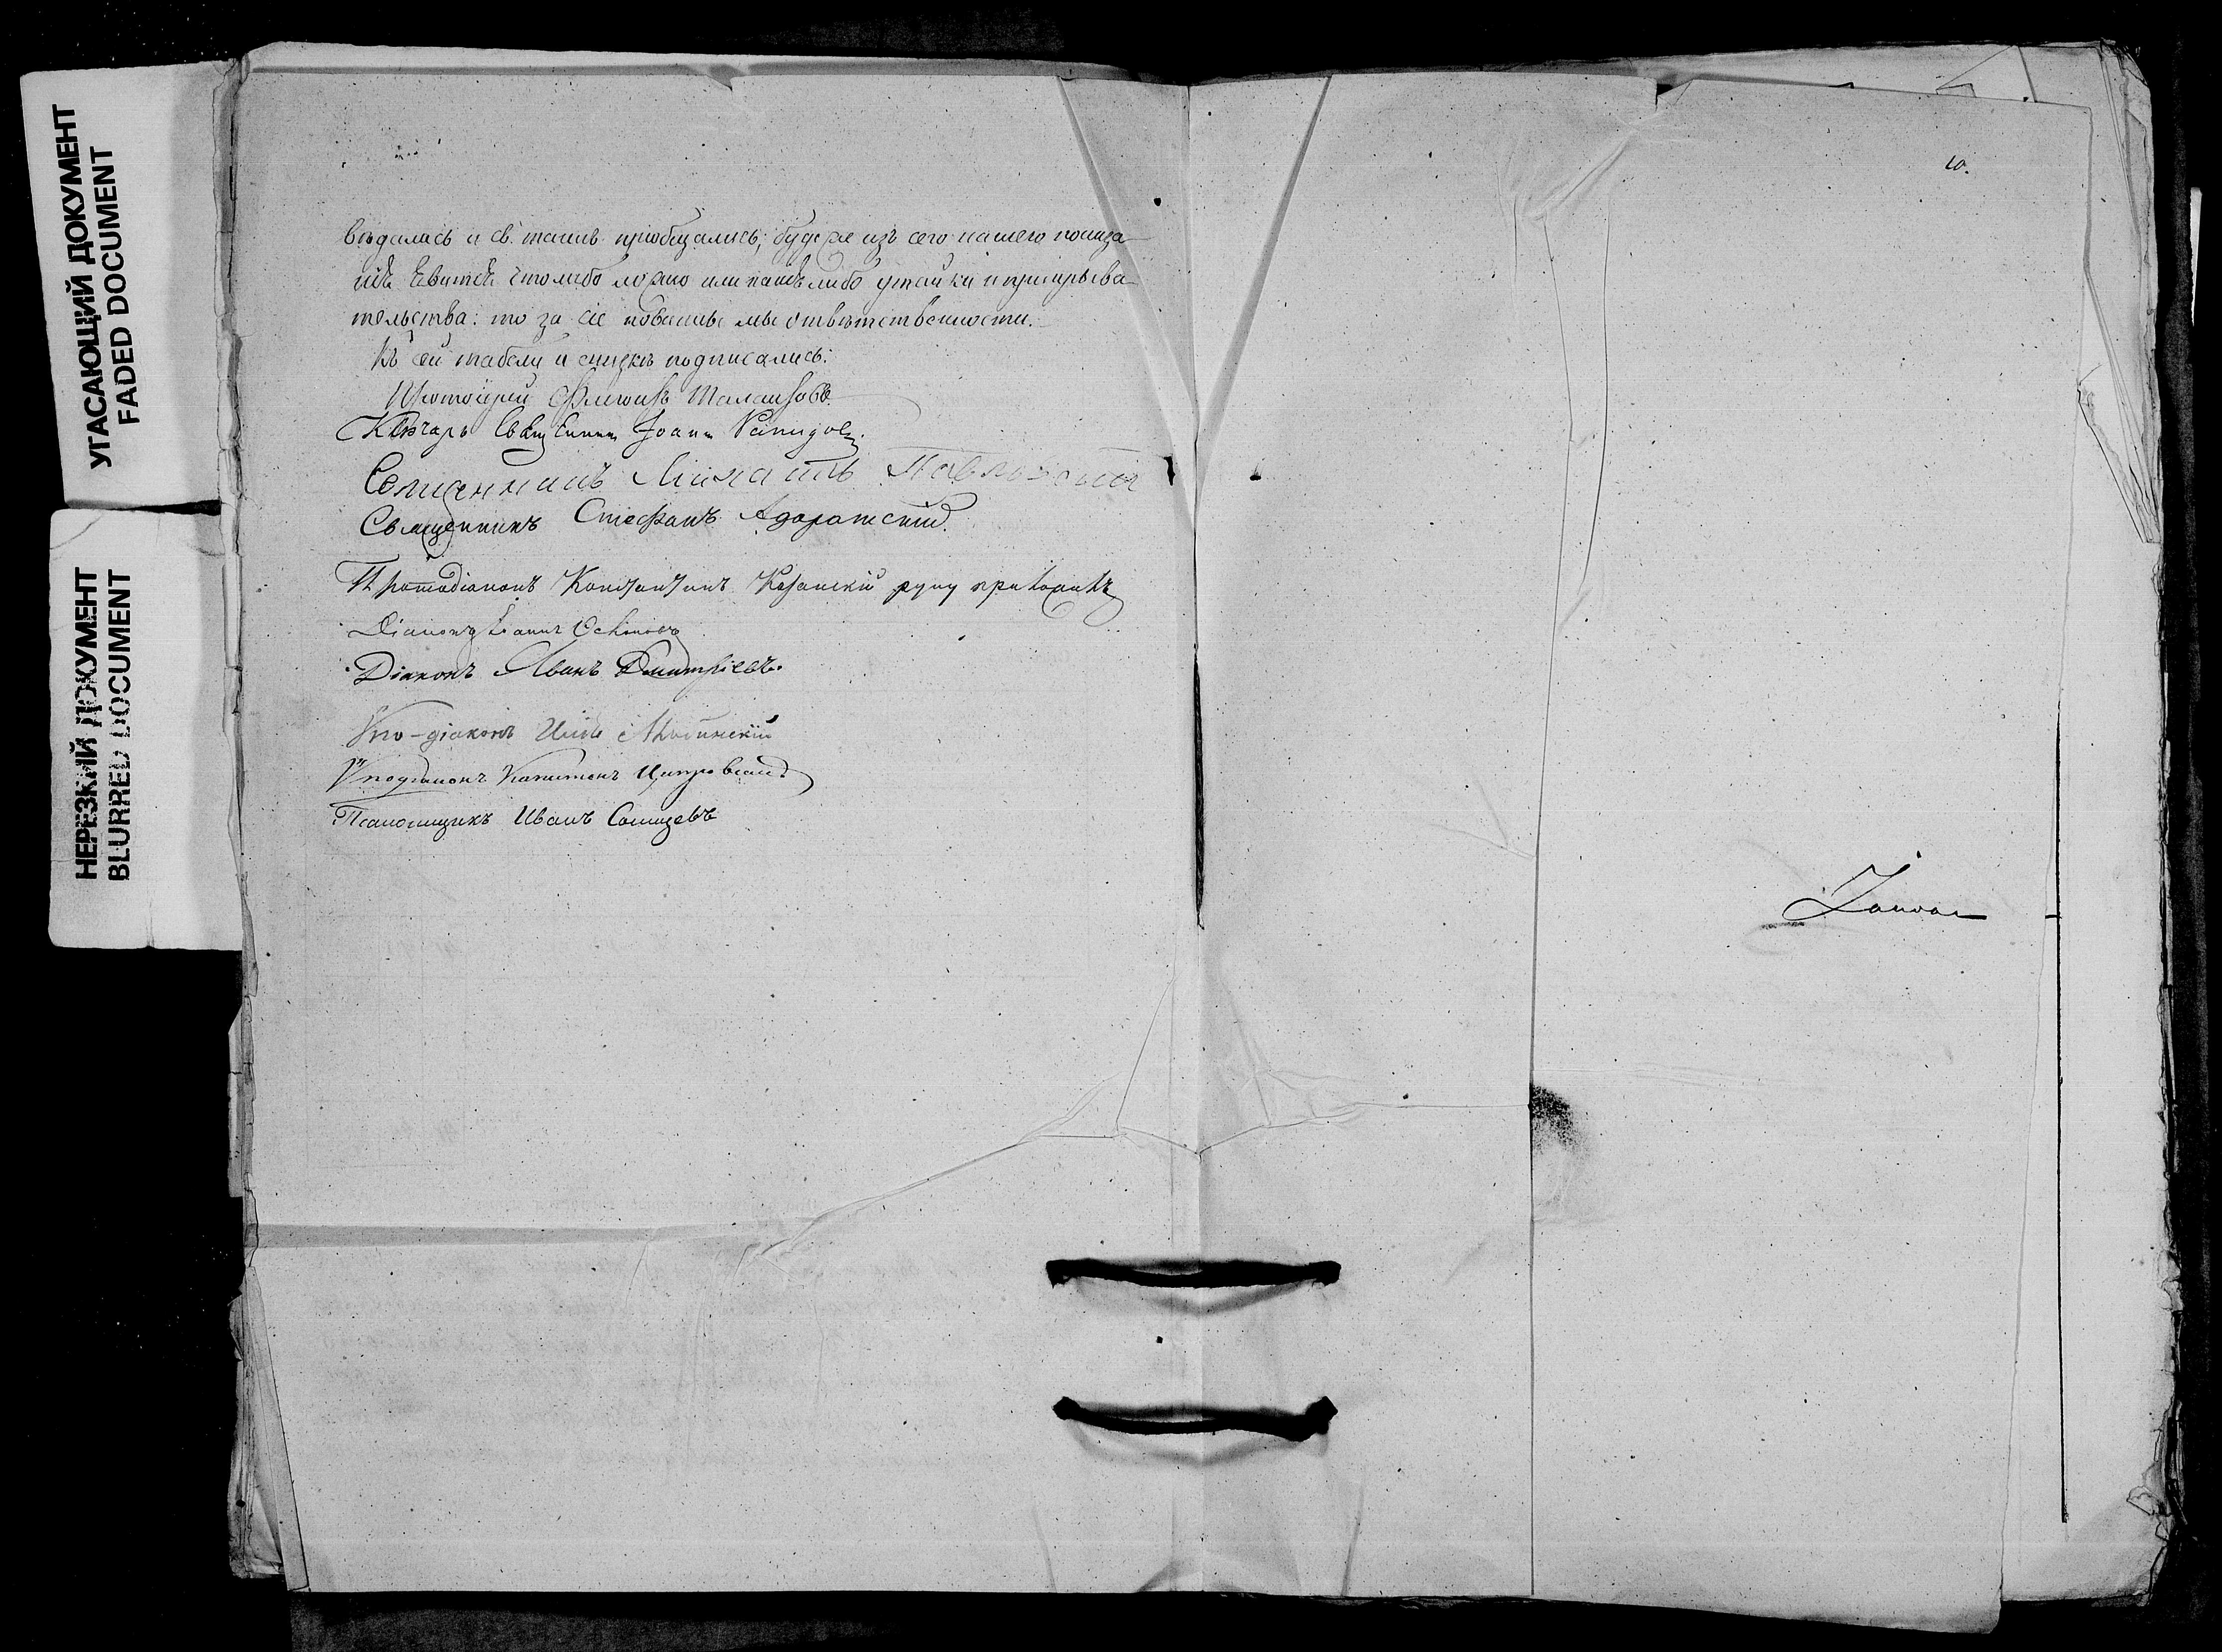 УГАСАЮЩИЙ ДОКУМЕНТ
FADED DOCUMENT
НЕРЕЗКИЙ ДОКУМЕНТ
BLURRED DOCUMENT
10.
вѣдались и св. таинъ пріобщались; буде же изъ сего нашего показа
нія явится что либо ложно или какъ либо утайки и прикрыва
тельства: то за сіе повинны мы отвѣтственности.
Къ сей табели и списку подписались:
Протоіерей
Ключарь Священникъ Іоаннъ
Священникъ Михаилъ
Священникъ Стефанъ Адоратскій.
Протодіаконъ Константинъ Казанскій руку приложилъ
Діаконъ Іоаннъ
Діаконъ Иванъ Дмитріевъ.
Ѵпо-діаконъ
Ѵподіаконъ Капитонъ
Псаломщикъ Иванъ Солнцевъ